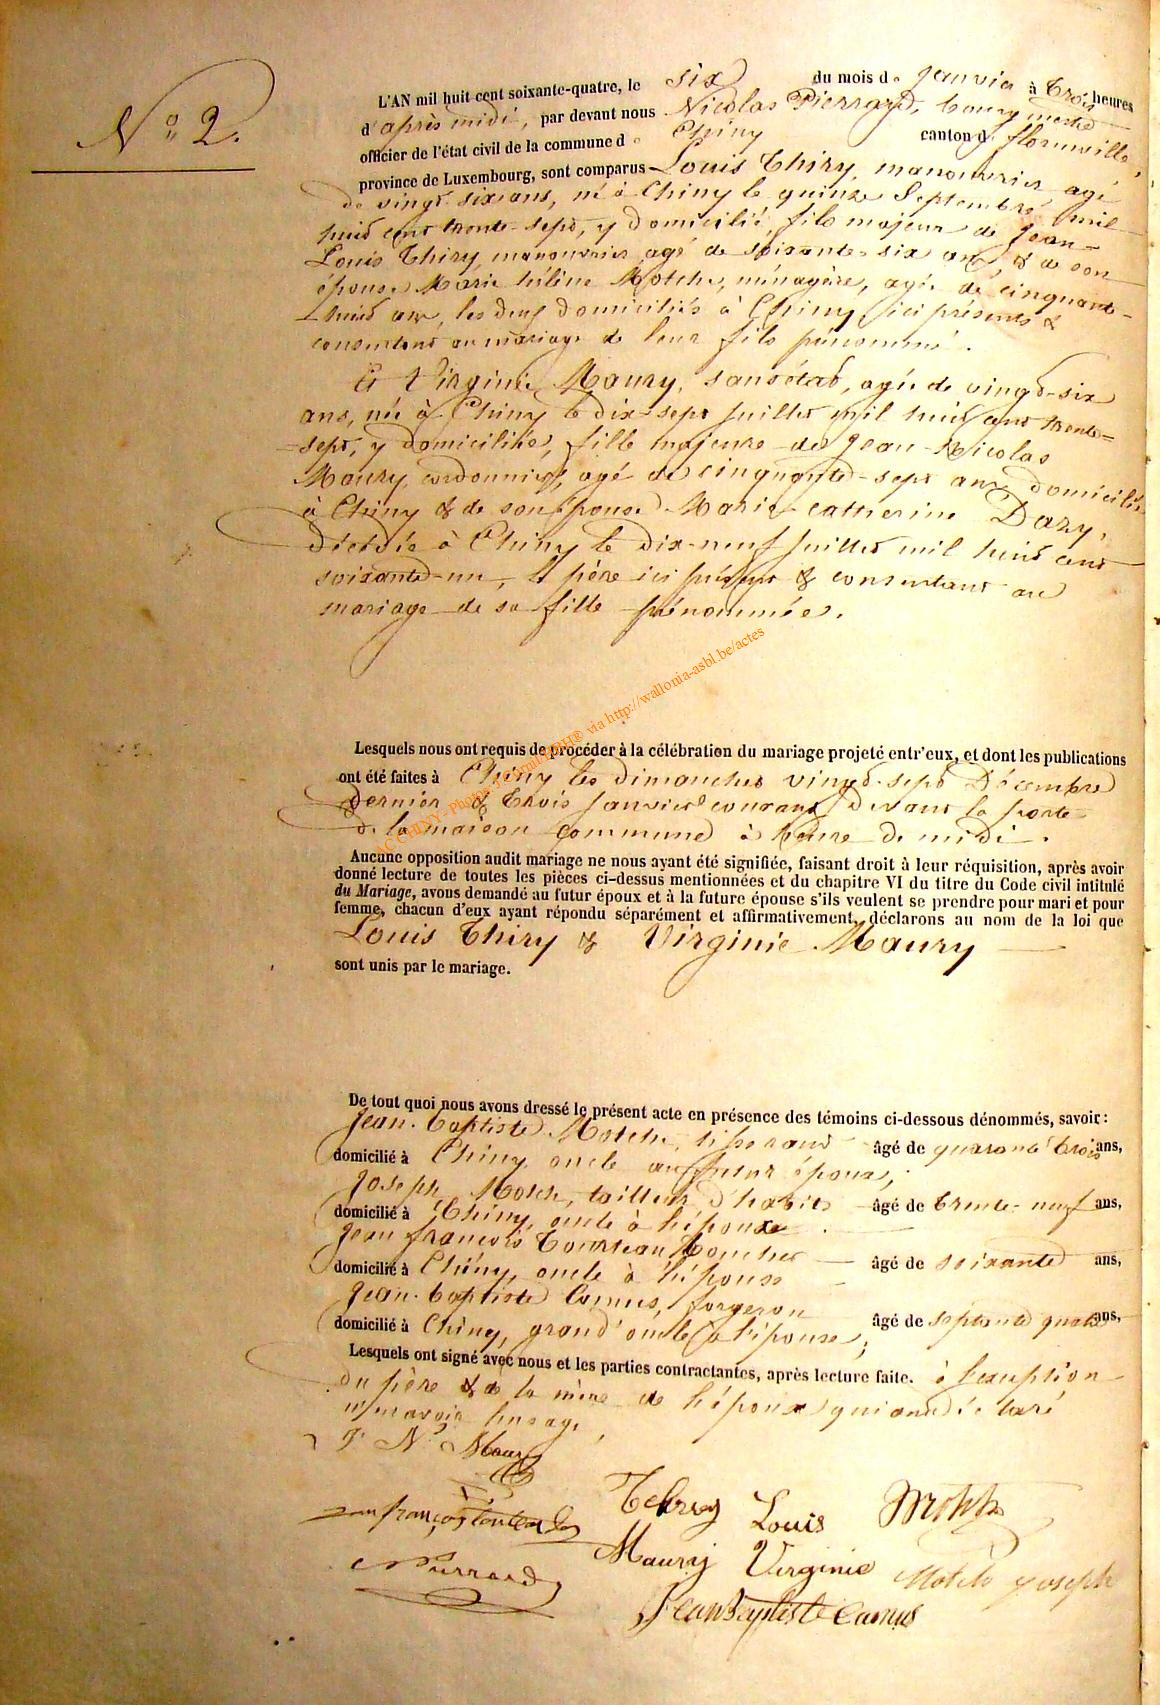 N° 2.
L'AN mil huit cent soixante-quatre, le six du mois de janvier à trois heures
d'après midi, par devant nous Nicolas Pierrard, bourgmestre
officier de l'état civil de la commune de Chiny canton de florenville,
province de Luxembourg, sont comparus Louis Thiry, manouvrier, agé
de vingt six ans, né à Chiny le quinze Septembre mil
huit cent trente-sept, y domicilié, fils majeur de Jean-
Louis Thiry, manouvrier agé de soixante-six ans, & de son
épouse Marie hélène Motche, ménagère, agée de cinquante-
-huit ans, les deux domiciliés à Chiny, ici présents &
consentant au mariage de leur fils prénommé.
Et Virginie Maury, sans état, agée de vingt-six
ans, née à Chiny le dix-sept juillet mil huit cent trente=
=sept, y domiciliée, fille majeure de Jean-Nicolas
Maury, cordonnier, agé de cinquante-sept ans domicilié
à Chiny & de son épouse Marie-Catherine Dazy,
décédée à Chiny le dix-neuf juillet mil huit cent
soixante-un, le père ici présent & consentant au
mariage de sa fille prénommée.
Lesquels nous ont requis de procéder à la célébration du mariage projeté entr'eux, et dont les publications
ont été faites à Chiny les dimanches vingt-sept Décembre
dernier & trois janvier courant devant la porte
de la maison commune à heure de midi.
Aucune opposition audit mariage ne nous ayant été signifiée, faisant droit à leur réquisition, après avoir
donné lecture de toutes les pièces ci-dessus mentionnées et du chapitre VI du titre du Code civil intitulé
du Mariage, avons demandé au futur époux et à la future épouse s'ils veulent se prendre pour mari et pour
femme, chacun d'eux ayant répondu séparément et affirmativement, déclarons au nom de la loi que
Louis Thiry & Virginie Maury
sont unis par le mariage.
De tout quoi nous avons dressé le présent acte en présence des témoins ci-dessous dénommés, savoir:
Jean-baptiste Motche, tisserand âgé de quarante trois ans,
domicilié à Chiny oncle au futur époux;
Joseph Motch, tailleur d'habits âgé de trente-neuf ans,
domicilié à Chiny, oncle à l'époux.
Jean françois boucher âgé de soixante ans,
domicilié à Chiny, oncle à l'épouse
Jean-baptiste Camus, forgeron âgé de septante quatre ans,
domicilié à Chiny, grand'oncle à l'épouse;
Lesquels ont signé avec nous et les parties contractantes, après lecture faite. à l'exception
du père & de la mère de l'époux qui ont déclaré
n'en avoir l'usage,
J. N. Maury
Louis
Maurij Virginie Motch Joseph
N Pierrard
Jean Baptiste Camus
ACCHINY - Photos via http://wallonia-asbl.be/actes